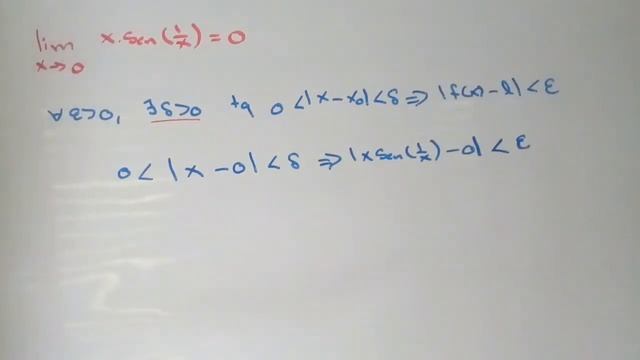 lim x→0 x.sen(1/x) = 0
∀ε>0, ∃δ>0 tq 0<|x-x₀|<δ ⇒ |f(x)-l|<ε
0<|x-0|<δ ⇒ |x sen(1/x)-0|<ε